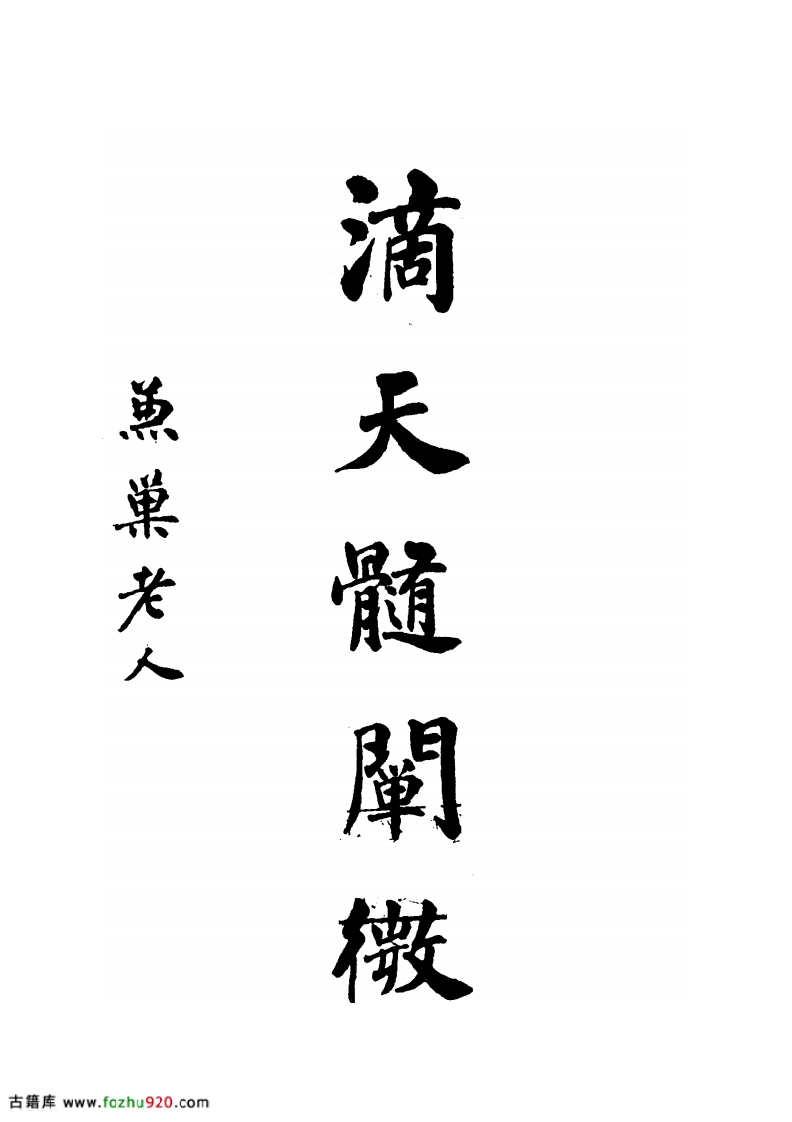 滴天髓闡微
巢老人
古籍库 www.fozhu920.com